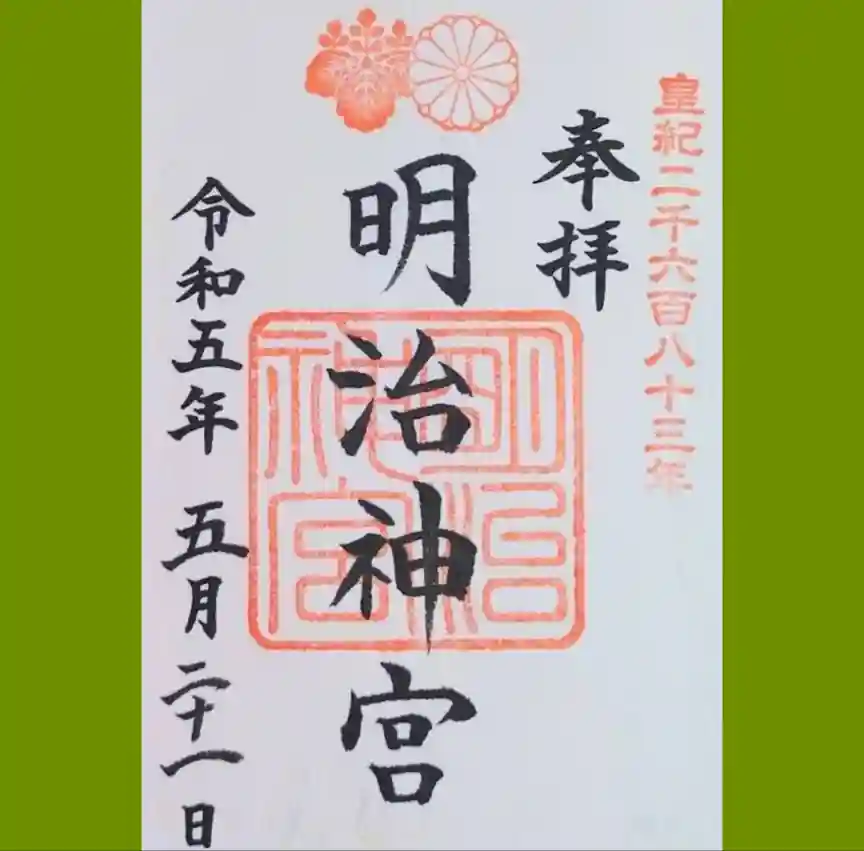 皇紀二千六百八十三年
奉拝
明治神宮
明治神宮
令和五年 五月二十一日